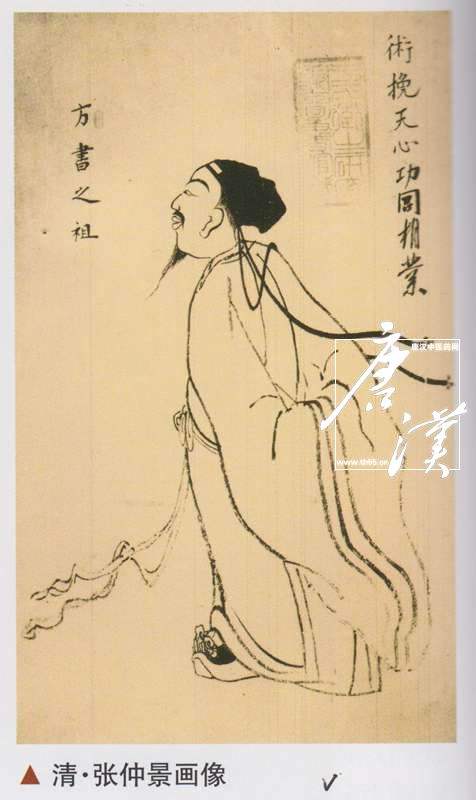 術挽天心功同相業
方書之祖
唐汉中医药网
唐漢
www.th55.cn
▲ 清·张仲景画像